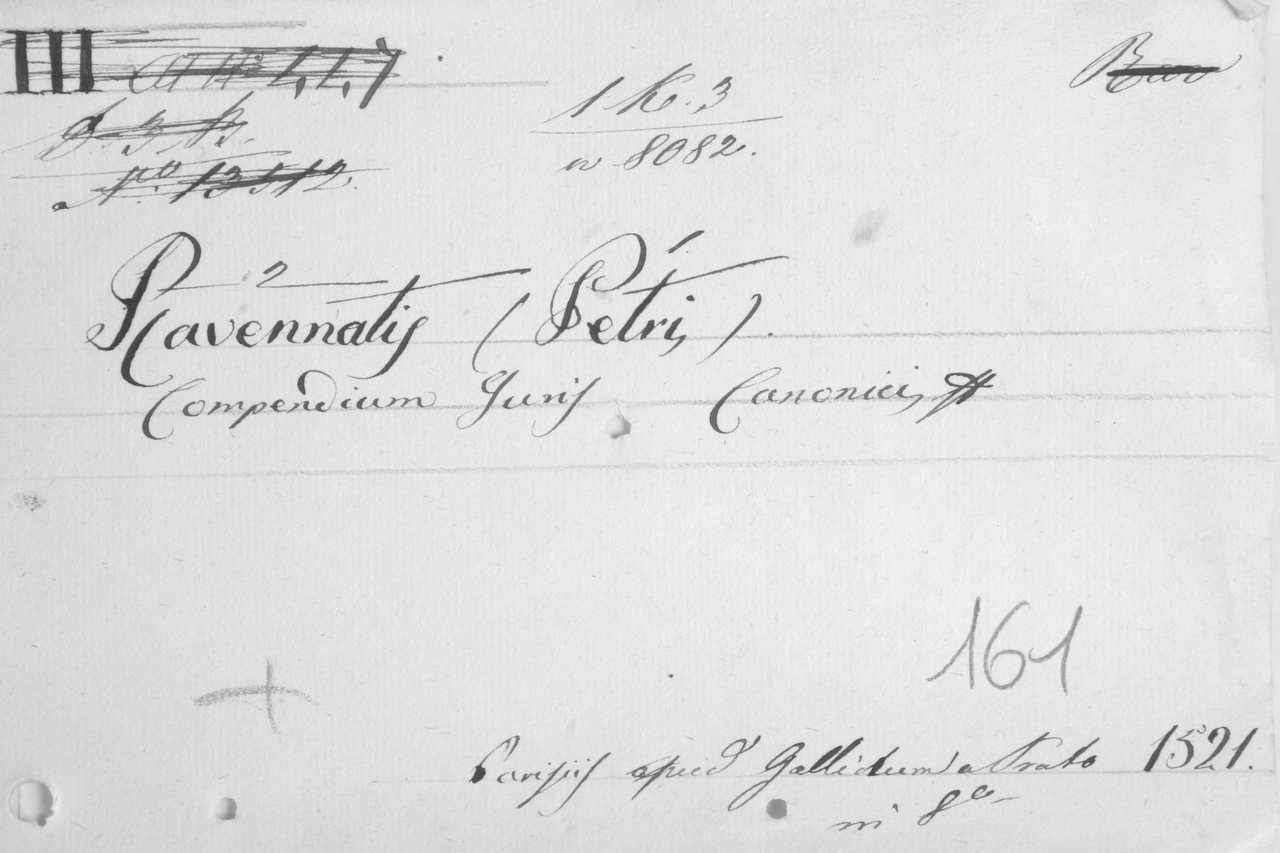 III
1 K. 3
n 8082.
No. 13512.
2 1
Ravennatis (Petri).
Compendium Juris Canonici,
161
Parisiis apud Galliotum a Prato 1521.
in 8o